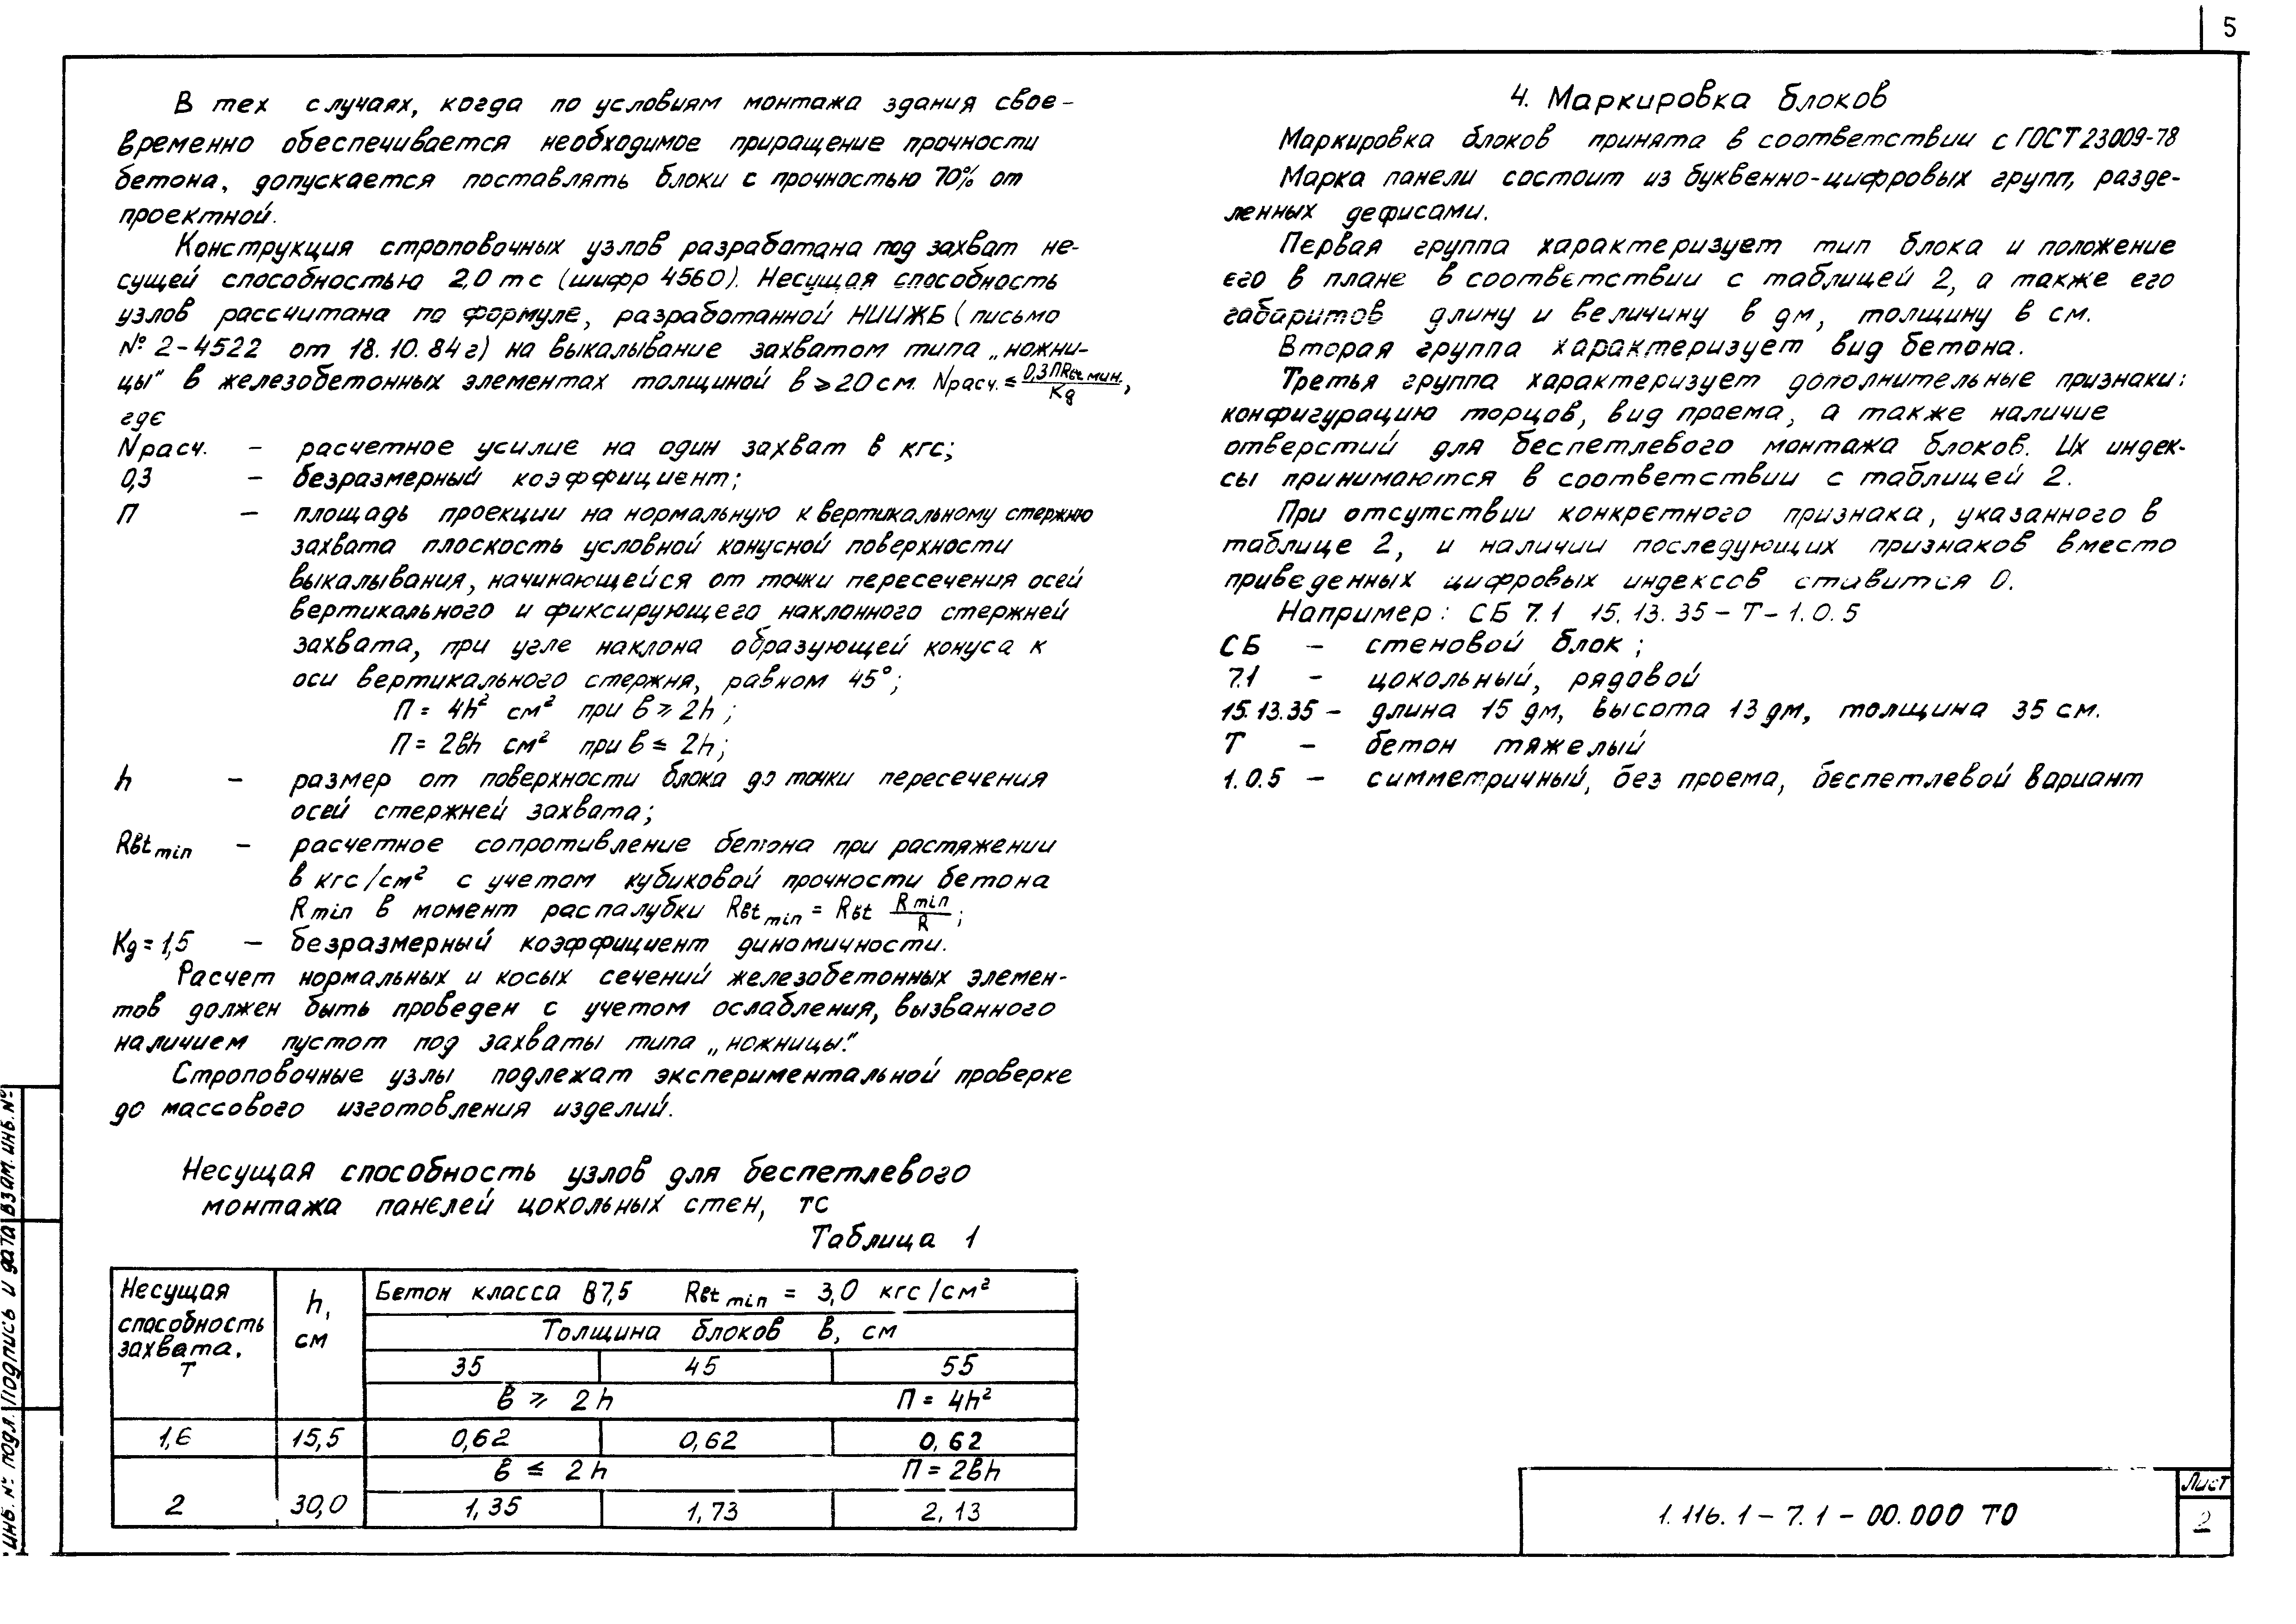 5
В тех случаях, когда по условиям монтажа здания свое-
временно обеспечивается необходимое приращение прочности
бетона, допускается поставлять блоки с прочностью 70% от
проектной.
Конструкция строповочных узлов разработана под захват не-
сущей способностью 2,0 тс (шифр 4560). Несущая способность
узлов рассчитана по формуле, разработанной НИИЖБ (письмо
№ 2-4522 от 18.10.84г) на выкалывание захватом типа „ножни-
цы" в железобетонных элементах толщиной в ≥ 20 см. Nрасч. ≤ 0,3ПRвt мин. / Kg,
где
Nрасч. – расчетное усилие на один захват в кгс;
0,3 – безразмерный коэффициент;
П – площадь проекции на нормальную к вертикальному стержню
захвата плоскость условной конусной поверхности
выкалывания, начинающейся от точки пересечения осей
вертикального и фиксирующего наклонного стержней
захвата, при угле наклона образующей конуса к
оси вертикального стержня, равном 45°;
П = 4h² см² при в ≥ 2h;
П = 2вh см² при в ≤ 2h;
h – размер от поверхности блока до точки пересечения
осей стержней захвата;
Rвt min – расчетное сопротивление бетона при растяжении
в кгс/см² с учетом кубиковой прочности бетона
R min в момент распалубки Rвt min = Rвt R min / R;
Kg = 1,5 – безразмерный коэффициент диномичности.
Расчет нормальных и косых сечений железобетонных элемен-
тов должен быть проведен с учетом ослабления, вызванного
наличием пустот под захваты типа „ножницы."
Строповочные узлы подлежат экспериментальной проверке
до массового изготовления изделий.
Несущая способность узлов для беспетлевого
монтажа панелей цокольных стен, тс
Таблица 1
Несущая способность захвата, Т
h, см
Бетон класса В7,5 Rвt min = 3,0 кгс/см²
Толщина блоков в, см
35 45 55
в ≥ 2h П = 4h²
1,6 15,5 0,62 0,62 0,62
в ≤ 2h П = 2вh
2 30,0 1,35 1,73 2,13
4. Маркировка блоков
Маркировка блоков принята в соответствии с ГОСТ 23009-78
Марка панели состоит из буквенно-цифровых групп, разде-
ленных дефисами.
Первая группа характеризует тип блока и положение
его в плане в соответствии с таблицей 2, а также его
габаритов длину и величину в дм, толщину в см.
Вторая группа характеризует вид бетона.
Третья группа характеризует дополнительные признаки:
конфигурацию торцов, вид проема, а также наличие
отверстий для беспетлевого монтажа блоков. Их индек-
сы принимаются в соответствии с таблицей 2.
При отсутствии конкретного признака, указанного в
таблице 2, и наличии последующих признаков вместо
приведенных цифровых индексов ставится 0.
Например: СБ 7.1 15.13.35 – Т – 1.0.5
СБ – стеновой блок;
7.1 – цокольный, рядовой
15.13.35 – длина 15 дм, высота 13 дм, толщина 35 см.
Т – бетон тяжелый
1.0.5 – симметричный, без проема, беспетлевой вариант
1.116.1 – 7.1 – 00.000 ТО
Лист
2
Инв. № подл. Подпись и дата Взам. инв. №